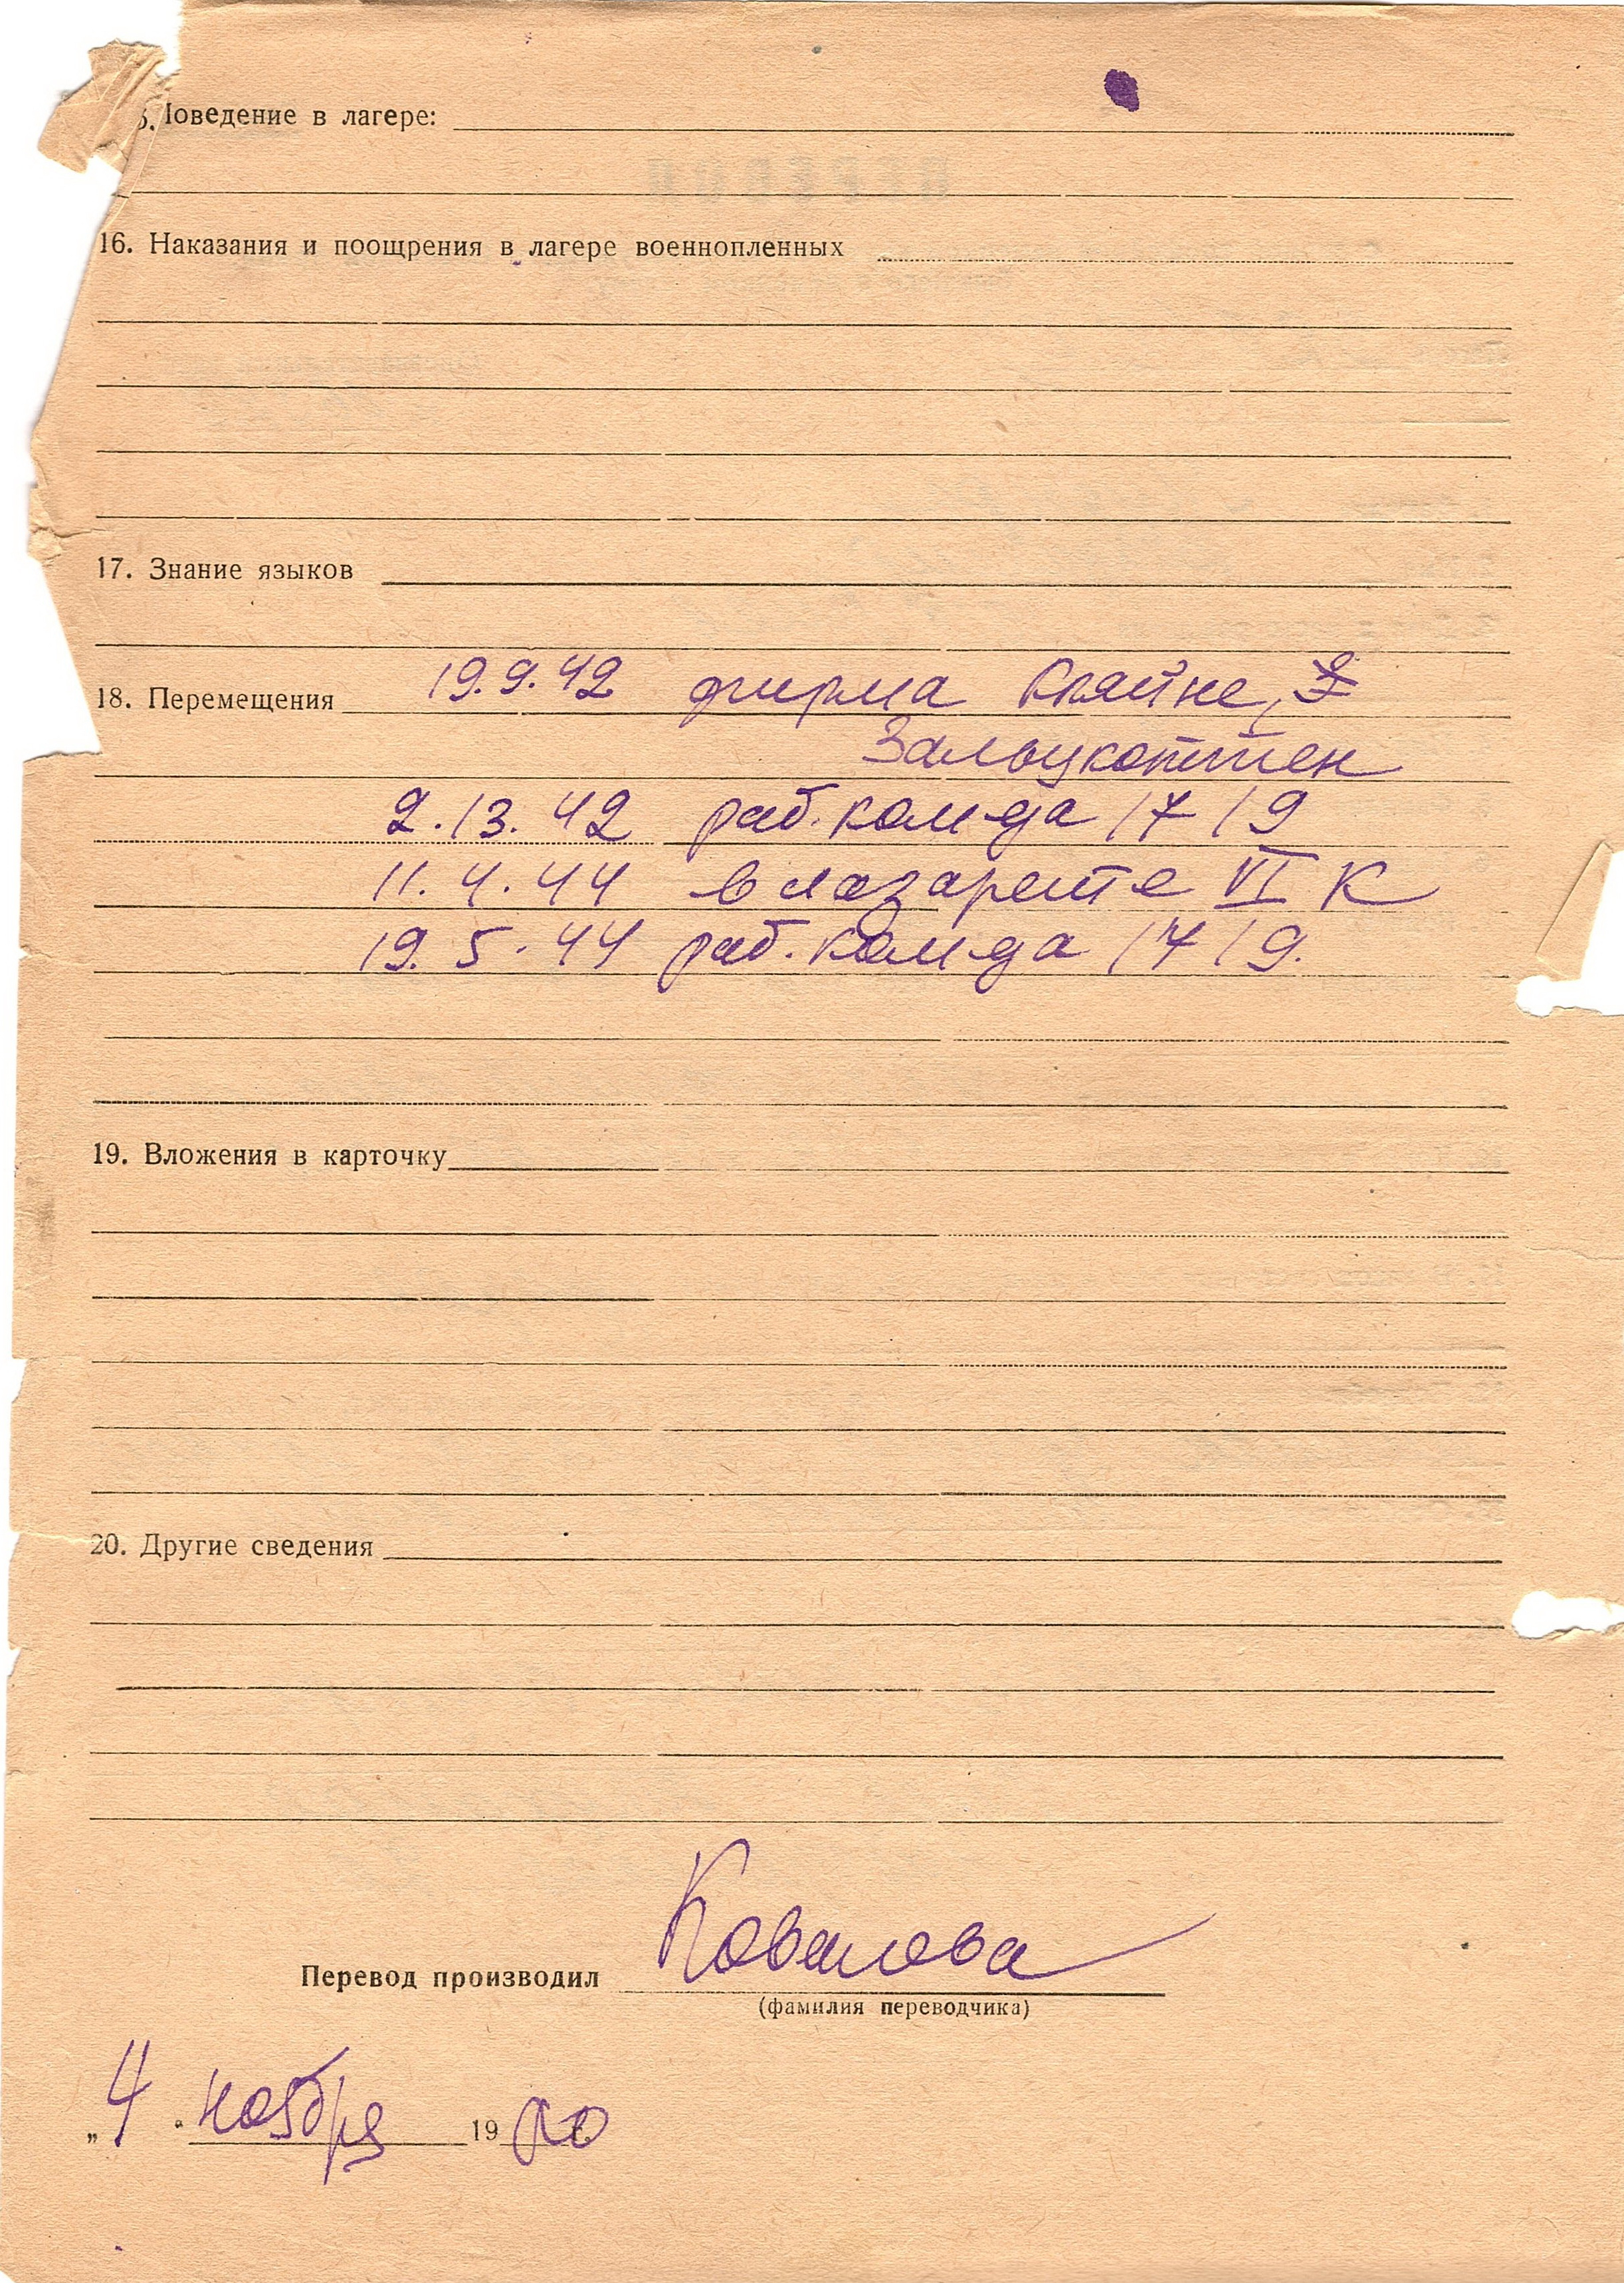 5. Поведение в лагере:
16. Наказания и поощрения в лагере военнопленных
17. Знание языков
18. Перемещения 19.9.42 фирма Кляйне,
Зальцкоттен
2.13.42 раб. ком-да 1719
11.4.44 в лазарете VI К
19.5.44 раб. ком-да 1719.
19. Вложения в карточку
20. Другие сведения
Перевод производил Ковалова
(фамилия переводчика)
„4" ноября 19